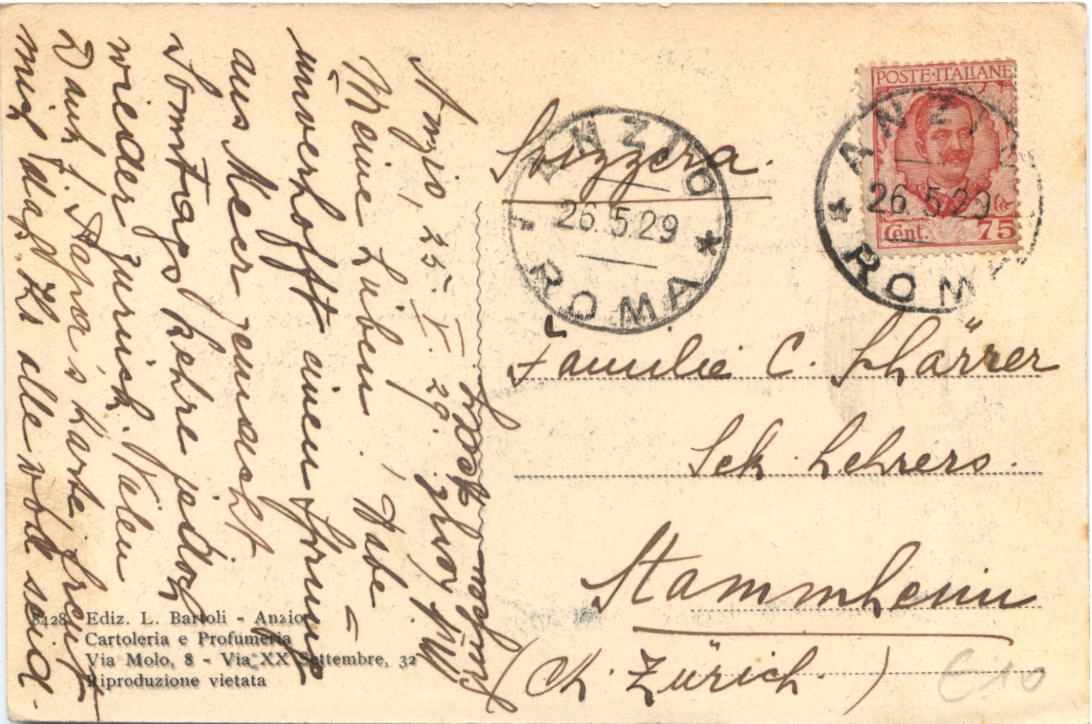 Anzio, 25. V. 29.
Meine Lieben, Habe
unverhofft einen Sprung
ans Meer gemacht
Sonntags kehre jedoch
wieder zurück. Vielen
Dank f. Papa's Karte, freut
mich daß Ihr alle wohl seid.
Svizzera.
ANZIO
26.5.29
ROMA
POSTE ITALIANE
Cent. 75
ANZIO
26.5.29
ROMA
Familie C. Schärrer
Sek. Lehrers.
Stammheim
(Ct. Zürich.)
8428 Ediz. L. Bartoli - Anzio
Cartoleria e Profumeria
Via Molo, 8 - Via XX Settembre, 32
Riproduzione vietata
€10